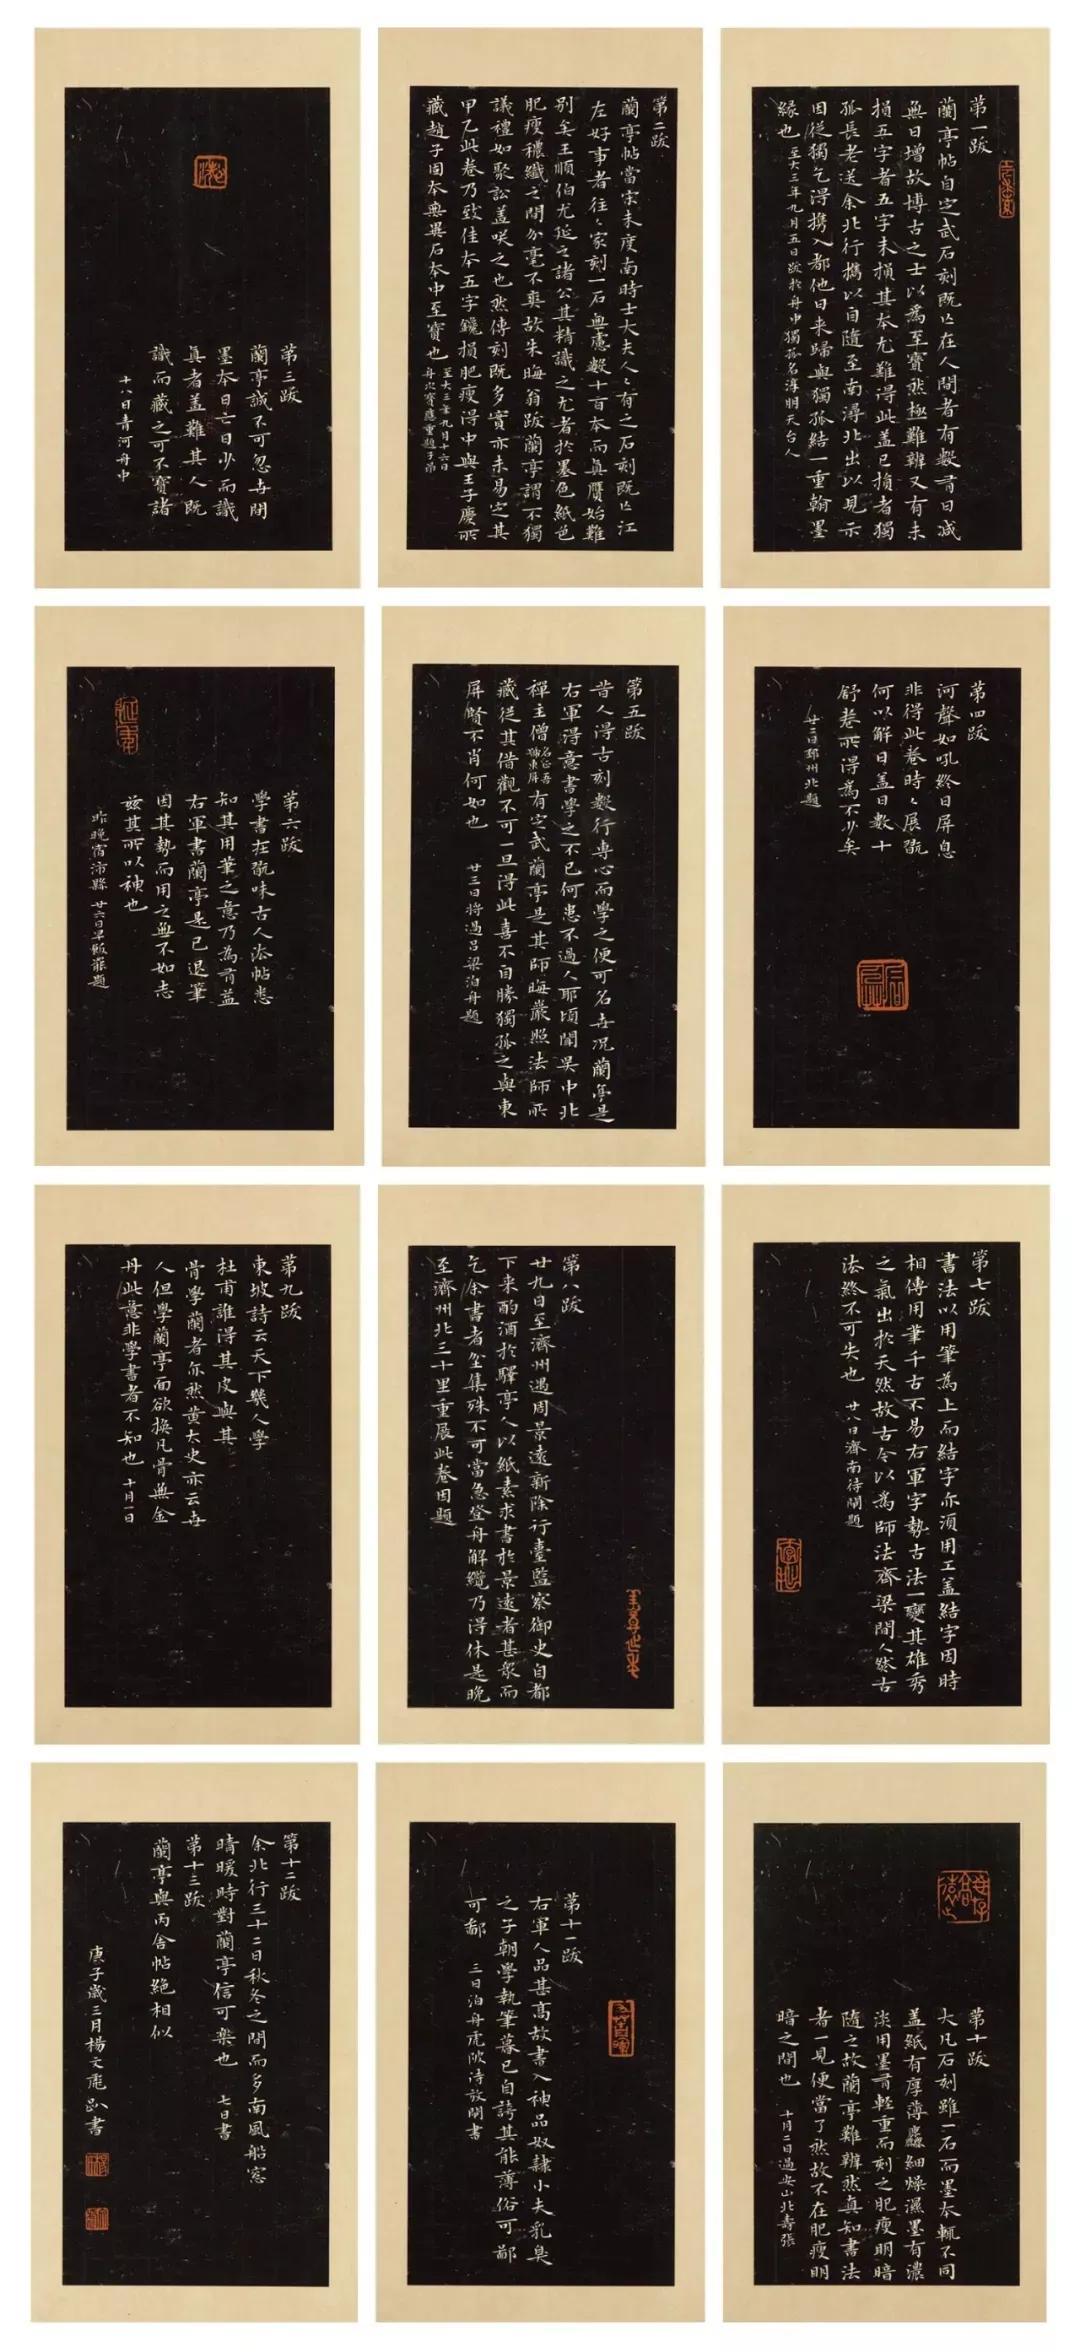 第一跋
蘭亭帖自定武石刻既亡在人間者有數有日減
無日增故博古之士以為至寶然極難辨又有未
損五字者五字未損其本尤難得此蓋已損者獨
孤長老送余北行攜以自隨至南潯北出以見示
因從獨乞得攜入都他日来歸與獨孤結一重翰墨
緣也 至大三年九月五日跋於舟中獨孤名淳明天台人
第二跋
蘭亭帖當宋未度南時士大夫人〻有之石刻既亡江
左好事者往〻家刻一石無慮數十百本而真贗始難
別矣王順伯尤延之諸公其精識之尤者於墨色紙色
肥瘦穠纖之間分毫不爽故朱晦翁跋蘭亭謂不獨
議禮如聚訟蓋咲之也然傳刻既多實亦未易定其
甲乙此卷乃致佳本五字鑱損肥瘦得中與王子慶所
藏趙子固本無異石本中至寶也 至大三年九月十六日
舟次寶應重題子昂
第三跋
蘭亭誠不可忽世間
墨本日亡日少而識
真者蓋難其人既
識而藏之可不寶諸
十八日清河舟中
第四跋
河聲如吼終日屏息
非得此卷時〻展翫
何以解日蓋日數十
舒卷所得為不少矣
廿二日邳州北題
第五跋
昔人得古刻數行專心而學之便可名世况蘭亭是
右軍得意書學之不已何患不過人耶頃聞吴中北
禪主僧名正吾號東屏有定武蘭亭是其師晦巖照法師所
藏從其借觀不可一旦得此喜不自勝獨孤之與東
屏賢不肖何如也 廿三日將過吕梁泊舟題
第六跋
學書在翫味古人法帖悉
知其用筆之意乃為有益
右軍書蘭亭是已退筆
因其勢而用之無不如志
兹其所以神也
昨晚宿沛縣廿六日早飯罷題
第七跋
書法以用筆為上而結字亦須用工蓋結字因時
相傳用筆千古不易右軍字勢古法一變其雄秀
之氣出於天然故古今以為師法齊梁間人然古
法終不可失也 廿八日濟南待閘題
第八跋
廿九日至濟州遇周景遠新除行臺監察御史自都
下来酌酒於驛亭人以紙素求書於景遠者甚衆而
乞余書者坌集殊不可當急登舟解纜乃得休是晚
至濟州北三十里重展此卷因題
第九跋
東坡詩云天下幾人學
杜甫誰得其皮與其
骨學蘭者亦然黄太史亦云世
人但學蘭亭面欲換凡骨無金
丹此意非學書者不知也 十月一日
第十跋
大凡石刻雖一石而墨本輒不同
蓋紙有厚薄麤細燥濕墨有濃
淡用墨有輕重而刻之肥瘦明暗
隨之故蘭亭難辨然真知書法
者一見便當了然故不在肥瘦明
暗之間也 十月二日過安山北壽張
第十一跋
右軍人品甚高故書入神品奴隸小夫乳臭
之子朝學執筆暮已自誇其能薄俗可鄙
可鄙 三日泊舟虎陂待放閘書
第十二跋
余北行三十二日秋冬之間而多南風船窓
晴暖時對蘭亭信可樂也 七日書
第十三跋
蘭亭與丙舍帖絶相似
庚子歲三月楊文彪䟦書